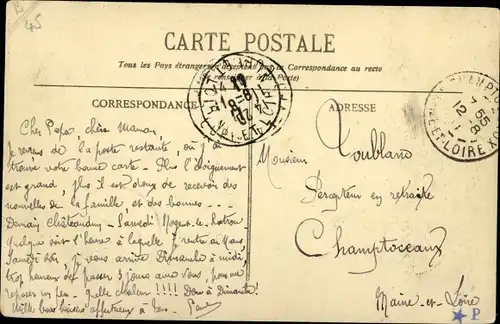 B
45
CARTE POSTALE
Tous les Pays étrangers la Correspondance au recto
(se renseigner à la Poste)
CORRESPONDANCE
ADRESSE
Cher Papa, chère Maman,
Je reviens de la poste restante, où j'ai
trouvé votre bonne carte – Plus l'éloignement
est grand, plus il est doux de recevoir des
nouvelles de la famille, et des bonnes...
Demain Châteaudun – Samedi Nogent-le-Rotrou
Quelque soit l'heure à laquelle je rentre
samedi soir, j'arrive Dimanche à midi,
trop heureux de passer 3 jours avec vous, pour me
reposer un peu – Quelle !!!! Donc à Dimanche
Mille bons baisers affectueux à tous –
Monsieur Toublanc
Percepteur en retraite
Champtoceaux
Maine-et-Loire
ET-LOIRE
P